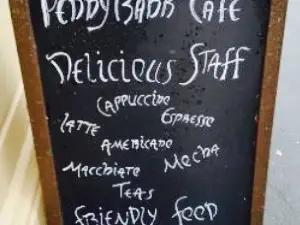 PENDYBADR CAFE
DELICIOUS STAFF
CAPPUCCINO
ESPRESSO
LATTE
AMERICANO
MOCHA
MACCHIATO
TEAS
FRIENDLY FOOD